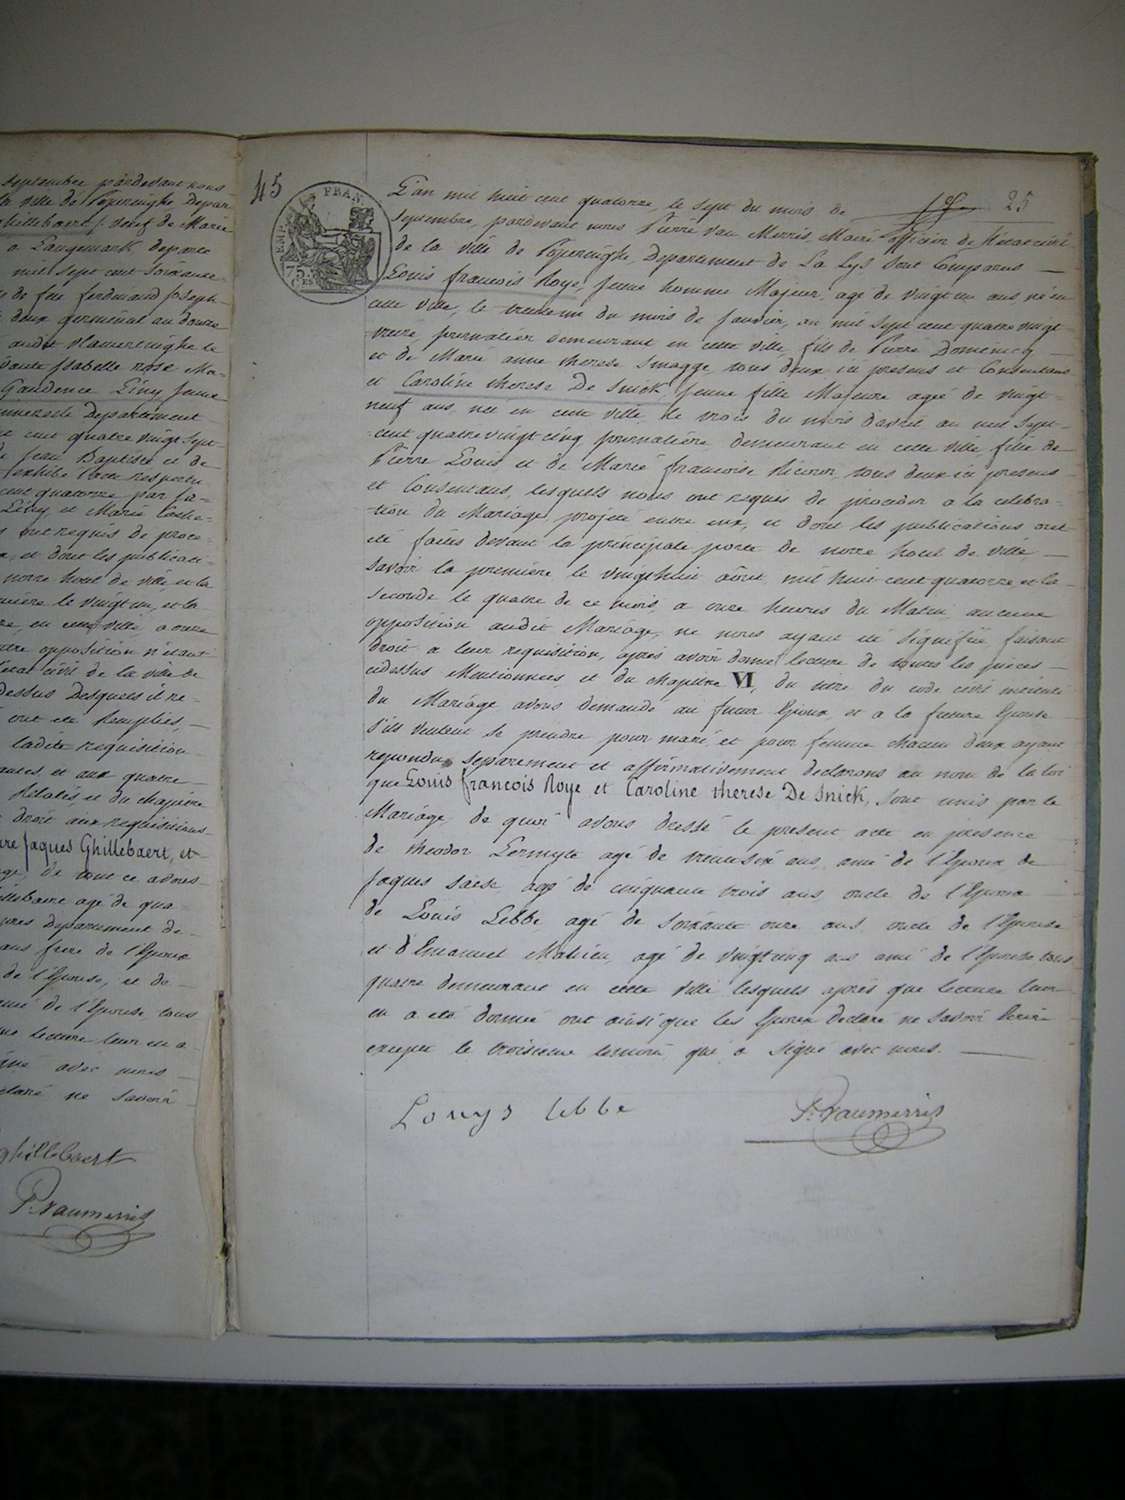 septembre pardevant nous
la ville de Popereinghe Depar
ghillebaert, veuf de Marie
a Langemark, departe
mil sept cent soixante
de feu ferdinand Joseph
deux germinal an douze
audit vlamertinghe le
Isabelle rose Ma-
Gaudence Liny Jeune
departement
cent quatre vingt sept
Jean Baptiste et de
cent quatorze par la
Liny et Marie
ont requis de proce-
et dont les publicati-
notre hotel de ville, et la
le vingt un, et la
en cette ville a onze
opposition n'etant
l'etat civil de la ville de
dessus Desquels il re-
ont ete Remplies,
ladite requisition
et aux quatre
Relatés et du chapitre
droit aux requisitions
Jaques Ghillebaert, et
De tout ce avons
agé de qua-
departement de
ans frere de l'Epoux
de l'Epouse, et de
ami de l'Epouse tous
lecture leur en a
signé avec nous
declaré ne savoir
ghillebaert
P. Vanmerris
45
EMP. FRAN.
75 Ces
25
L'an mil huit cent quatorze, le sept du mois de
Septembre, pardevant nous Pierre Van Merris, Maire officier de l'état civil
de la ville de Popereinghe, Departement de La Lys sont Comparus
Louis francois Roye, Jeune homme Majeur, agé de vingt un ans né en
cette ville, le trente un du mois de Janvier, an mil sept cent quatre vingt
treize, journalier demeurant en cette ville fils de Pierre Domincq
et de Marie anne therese Smagge, tous deux ici presens et Consentans
et Caroline therese De Snick, Jeune fille Majeure agée de vingt
neuf ans née en cette ville le trois du mois d'avril an mil sept
cent quatre vingt cinq, journalière, demeurant en cette ville fille de
Pierre Louis et de Marie francoise Ricour, tous deux ici presens
et Consentans, lesquels nous ont requis de proceder a la celebra-
tion du Mariage projeté entre eux, et dont les publications ont
eté faites devant la principale porte de notre hotel de ville,
savoir la premiere, le vingt huit aôut, mil huit cent quatorze et la
seconde le quatre de ce mois, a onze heures du Matin aucune
opposition audit Mariage, ne nous ayant eté signifiée, faisant
droit a leur requisition, après avoir donné lecture de toutes les pieces
cidessus Mentionnées, et du chapitre VI, du titre du code civil intitulé
du Mariage avons demandé au futur Epoux, et a la future Epouse
s'ils veulent se prendre pour mari, et pour femme chacun d'eux ayant
repondu separement et affirmativement declarons au nom de la loi
que Louis francois Roye et Caroline therese De Snick, sont unis par le
Mariage, de quoi avons dressé le present acte en presence
de theodor Lermyte agé de trente six ans, ami de l'Epoux, de
Jaques Saese, agé de cinquante trois ans oncle de l'Epoux
de Louis Lebbe agé de soixante onze ans, oncle de l'Epouse
et d'Emanuel Mahieu, agé de vingt cinq ans ami de l'Epouse tous
quatre demeurans en cette ville lesquels après que lecture leur
en a eté donnée ont ainsi que les Epoux declaré ne savoir Ecrire
excepté le troisieme temoin, qui a signé avec nous.
Louys lebbe
P. Vanmerris